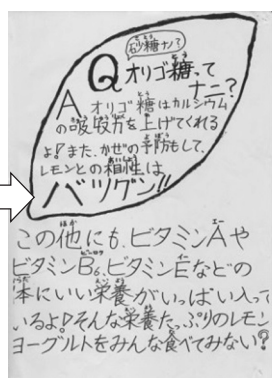 砂糖ナノ?
Q オリゴ糖って
ナニ?
A オリゴ糖はカルシウム
の吸収方を上げてくれる
よ!また、かぜの予防もして、
レモンとの相性は
バツグン!!
この他にも、ビタミンAや
ビタミンB6、ビタミンEなどの
体にいい栄養がいっぱい入って
いるよ!そんな栄養たっぷりのレモン
ヨーグルトをみんな食べてみない?